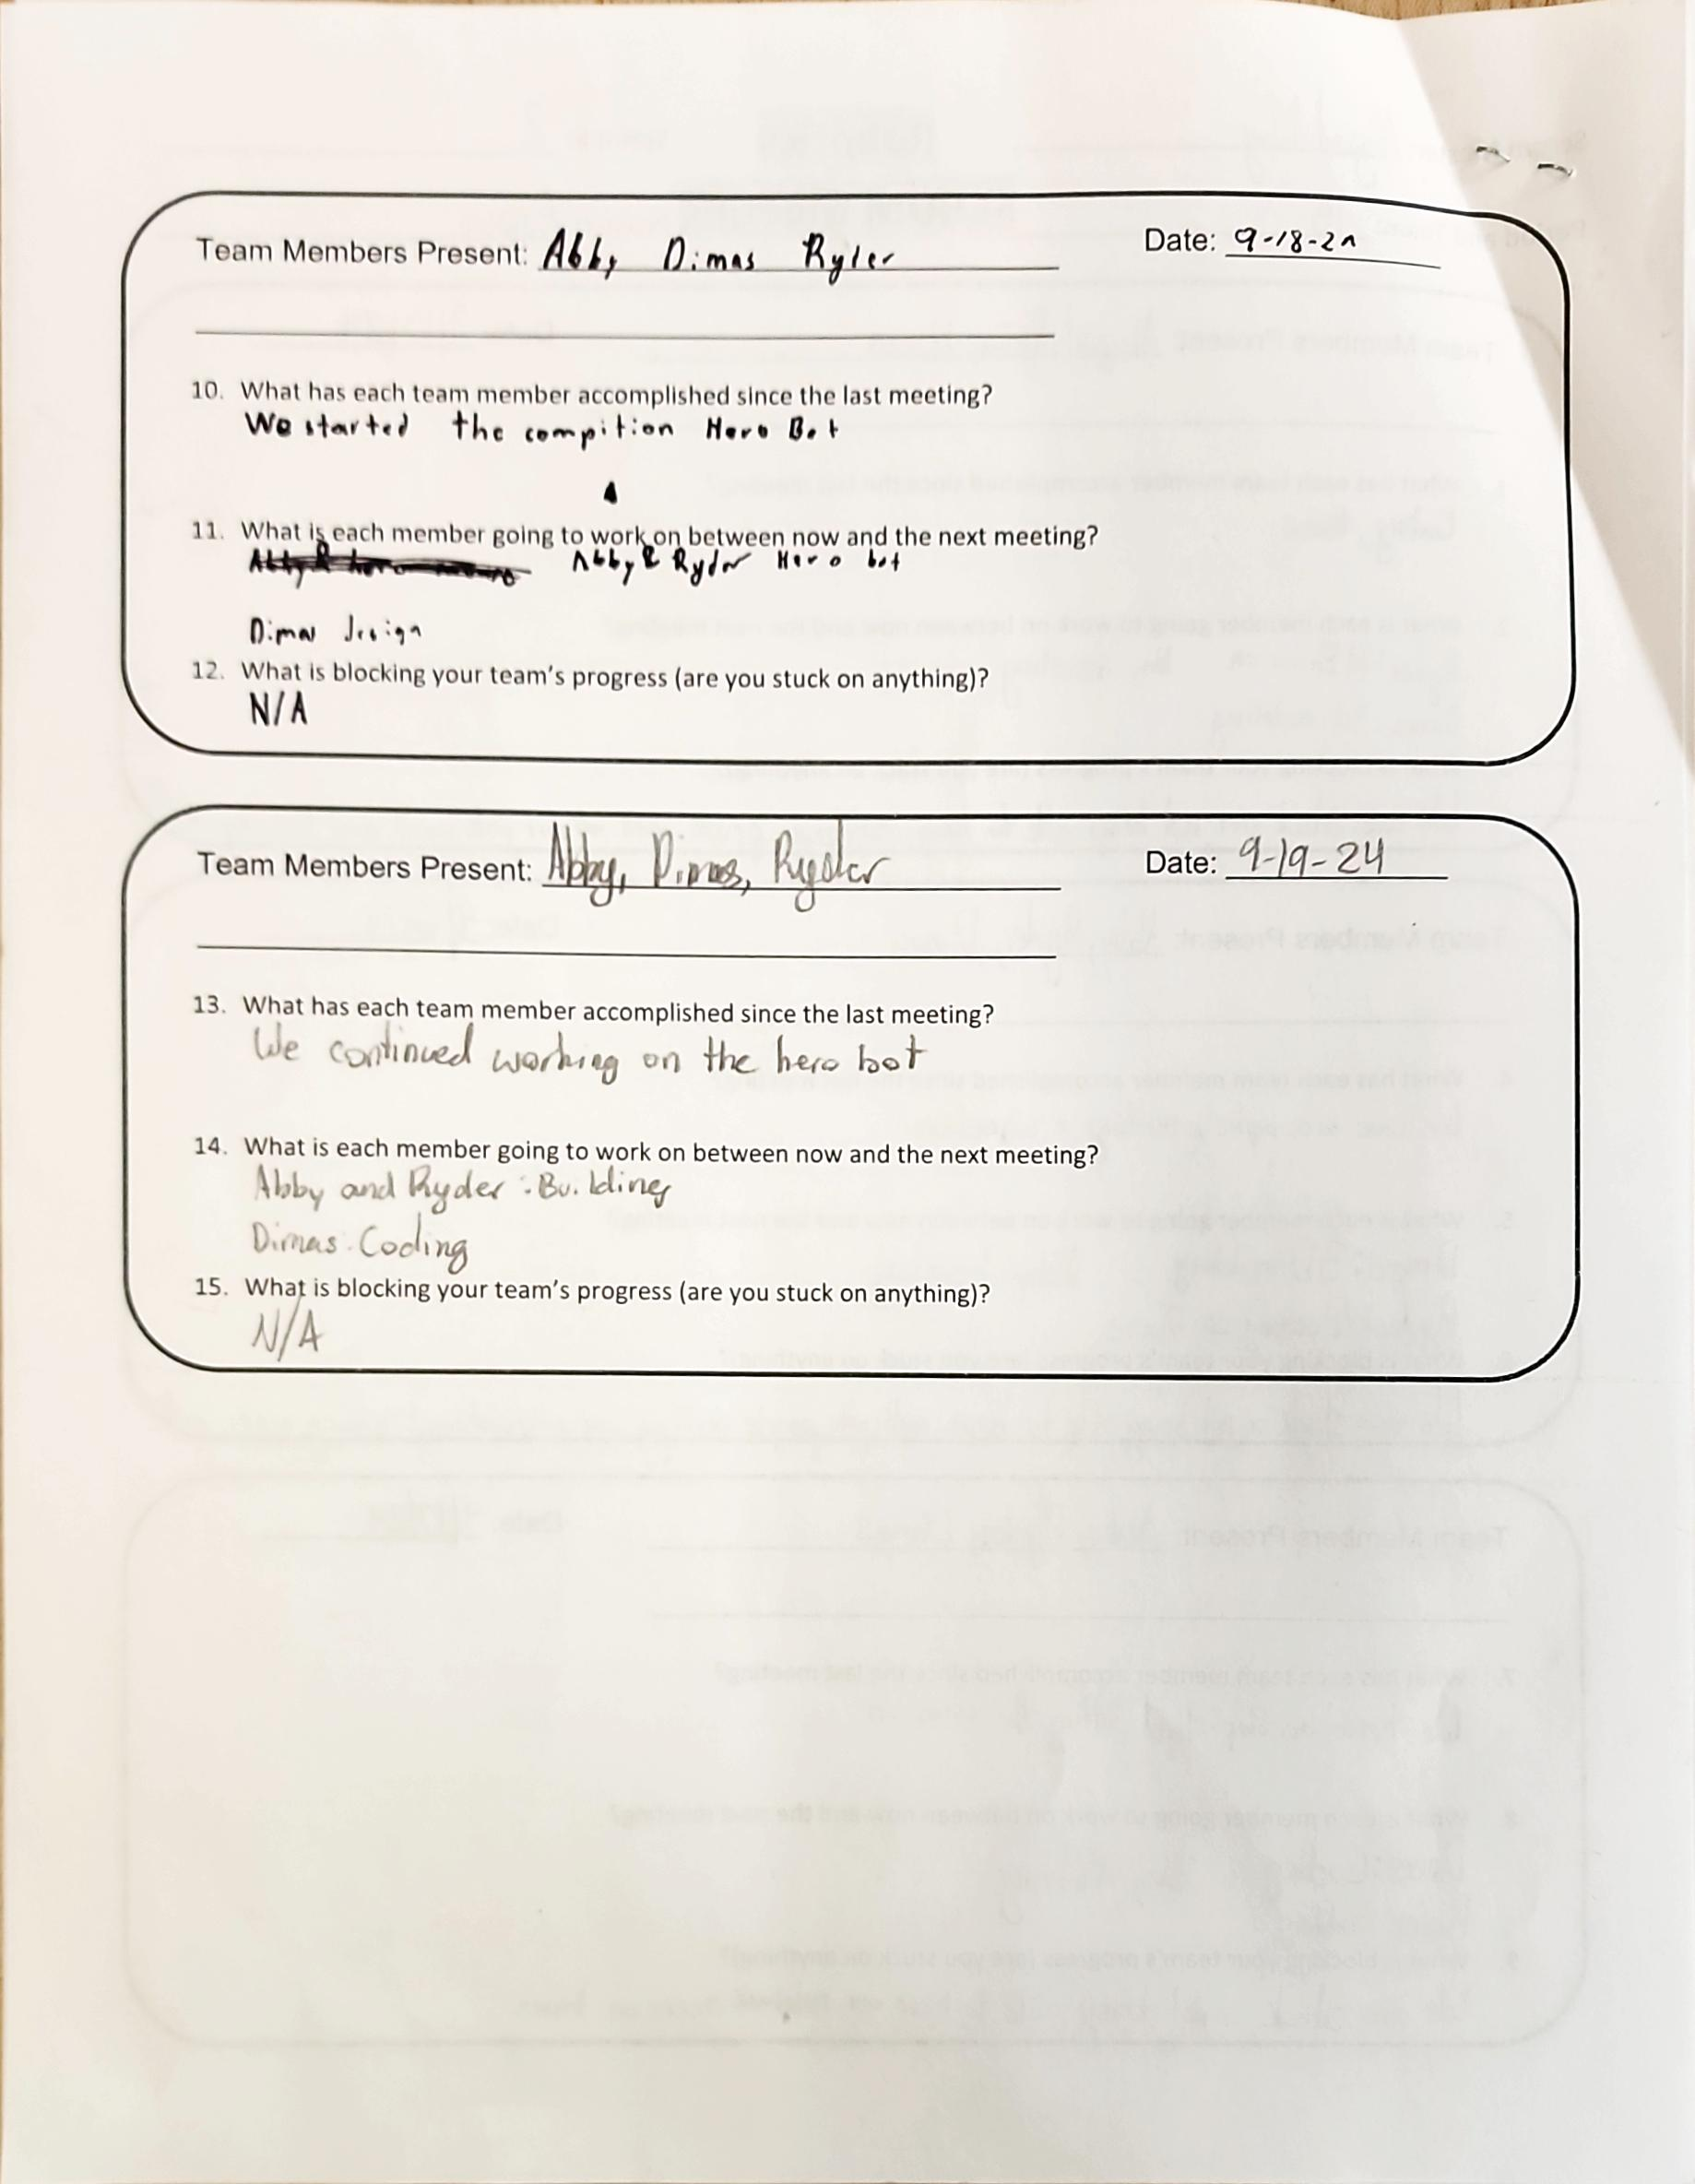 Team Members Present: Abby Dimas Ryder Date: 9-18-2
10. What has each team member accomplished since the last meeting?
We started the compition Hero Bot
11. What is each member going to work on between now and the next meeting?
Abby & Ryder Hero bot
Dimas design
12. What is blocking your team's progress (are you stuck on anything)?
N/A
Team Members Present: Abby, Dimas, Ryder Date: 9-19-24
13. What has each team member accomplished since the last meeting?
We continued working on the hero bot
14. What is each member going to work on between now and the next meeting?
Abby and Ryder : Building
Dimas : Coding
15. What is blocking your team's progress (are you stuck on anything)?
N/A